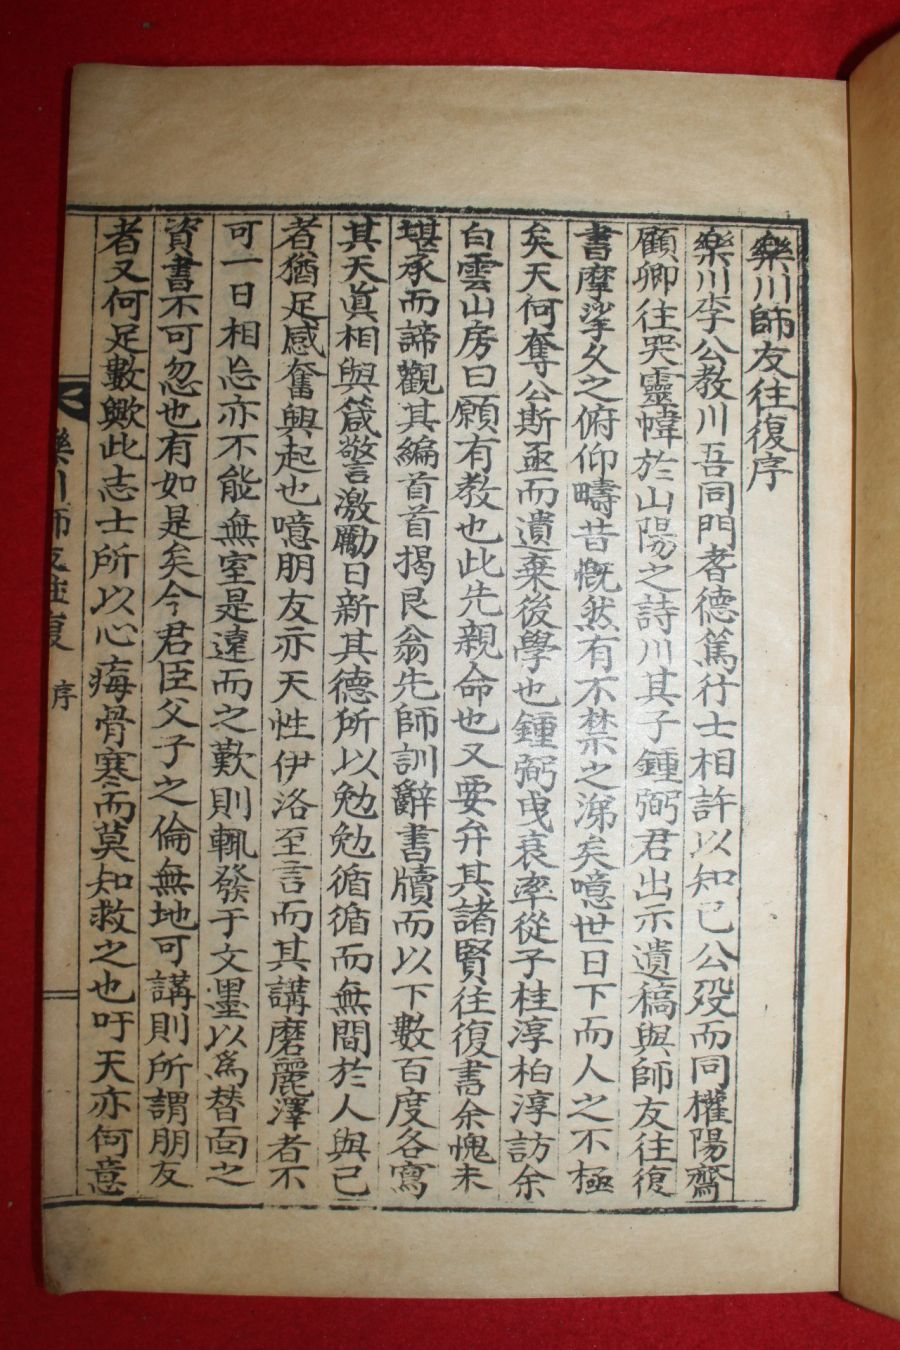 樂川師友往復序
樂川李公教川吾同門耆德篤行士相許以知已公歿而同權陽齋
顧卿往哭靈幃於山陽之詩川其子鍾弼君出示遺稿與師友往復
書摩挲久之俯仰疇昔慨然有不禁之涕矣噫世日下而人之不極
矣天何奪公斯亟而遺棄後學也鍾弼曳衰率從子桂淳柏淳訪余
白雲山房曰願有教也此先親命也又要弁其諸賢往復書余愧未
堪承而諦觀其編首首揭艮翁先師訓辭書牘而以下數百度各寫
其天眞相與箴警激勵日新其德所以勉勉循循而無間於人與已
者猶足感奮興起也噫朋友亦天性伊洛至言而其講磨麗澤者不
可一日相忘亦不能無室是遠而之歎則輒發于文墨以爲替面之
資書不可忽也有如是矣今君臣父子之倫無地可講則所謂朋友
者又何足數歟此志士所以心痗骨寒而莫知救之也吁天亦何意
樂川師友往復 序